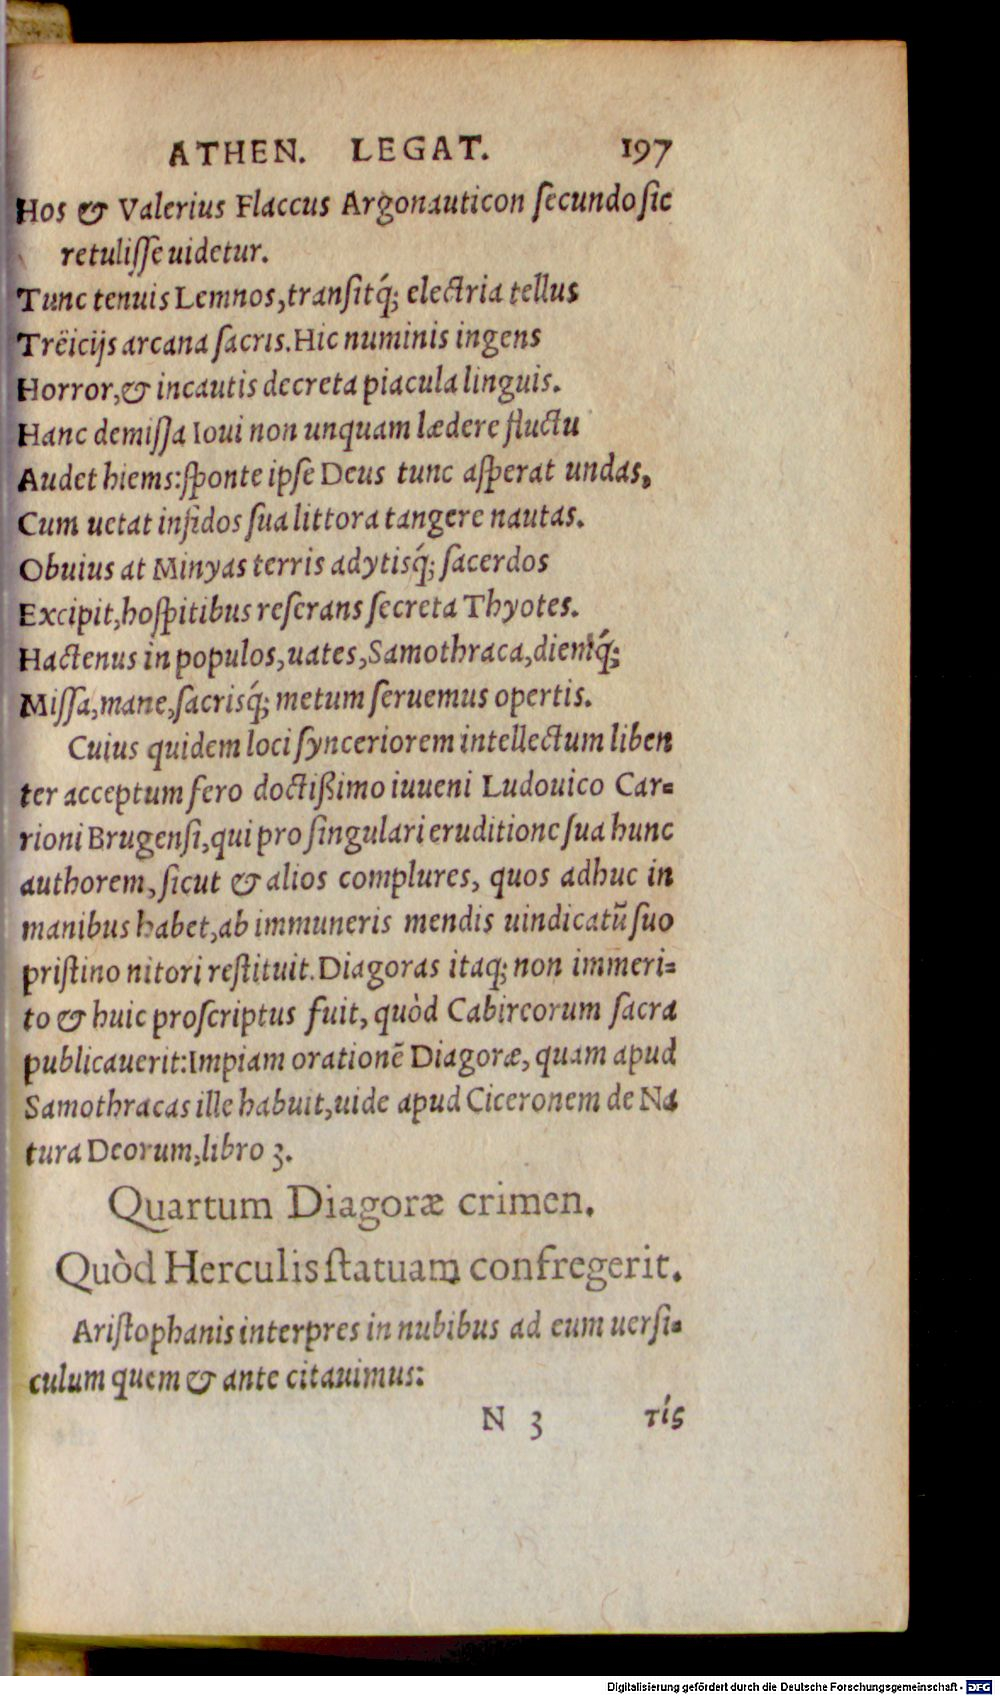 ATHEN. LEGAT. 197
Hos & Valerius Flaccus Argonauticon ſecundo ſic
retuliſſe uidetur.
Tunc tenuis Lemnos, tranſitq́; electria tellus
Trëicijs arcana ſacris. Hic numinis ingens
Horror, & incautis decreta piacula linguis.
Hanc demiſſa Ioui non unquam lædere fluctu
Audet hiems: ſponte ipſe Deus tunc aſperat undas,
Cum uetat infidos ſua littora tangere nautas.
Obuius at Minyas terris adytisq́; ſacerdos
Excipit, hoſpitibus reſerans ſecreta Thyotes.
Hactenus in populos, uates, Samothraca, diemq́;
Miſſa, mane, ſacrisq́; metum ſeruemus opertis.
Cuius quidem loci ſynceriorem intellectum liben
ter acceptum fero doctißimo iuueni Ludouico Car-
rioni Brugenſi, qui pro ſingulari eruditione ſua hunc
authorem, ſicut & alios complures, quos adhuc in
manibus habet, ab immuneris mendis uindicatũ ſuo
priſtino nitori reſtituit. Diagoras itaq; non immeri-
to & huic proſcriptus fuit, quòd Cabireorum ſacra
publicauerit: Impiam orationẽ Diagoræ, quam apud
Samothracas ille habuit, uide apud Ciceronem de Na
tura Deorum, libro 3.
Quartum Diagoræ crimen.
Quòd Herculis ſtatuam confregerit.
Ariſtophanis interpres in nubibus ad eum uerſi-
culum quem & ante citauimus:
N 3 τίς
Digitalisierung gefördert durch die Deutsche Forschungsgemeinschaft - DFG